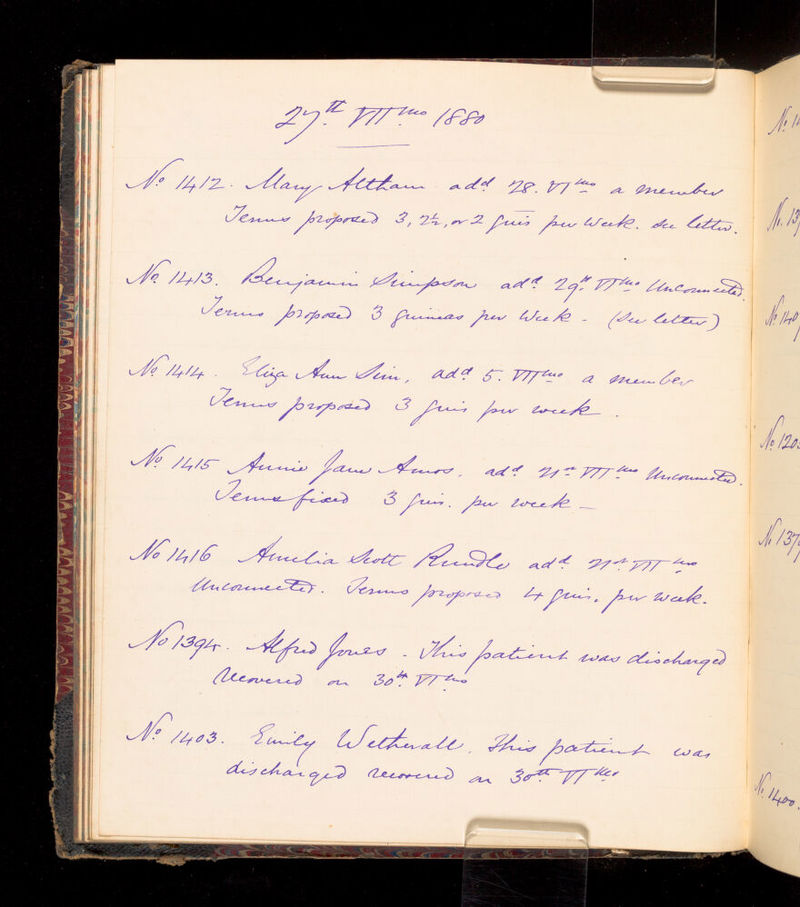 27th. VIImo 1880
No. 1412. Mary Altham add 28. VImo a member
Terms proposed 3, 2½, or 2 guis per week. see letter.
No. 1413. Benjamin Simpson add. 29th. VImo Unconnected.
Terms proposed 3 guineas per week - (See letter)
No. 1414. Eliza Ann Sim, add 5. VIImo a member
Terms proposed 3 guis per week.
No. 1415 Annie Jane Amos. add 21st VIImo Unconnected.
Terms fixed 3 guis. per week —
No 1416 Amelia Scott Rundle add 21st. VIImo
Unconnected. Terms proposed 4 guis. per week.
No 1394. Alfred Jones - This patient was discharged
recovered on 30th. VImo
No. 1403. Emily Wetherall. This patient was
discharged recovered on 30th VImo
No. 1
No. 13
No. 140
No. 120
No. 137
No. 1400.